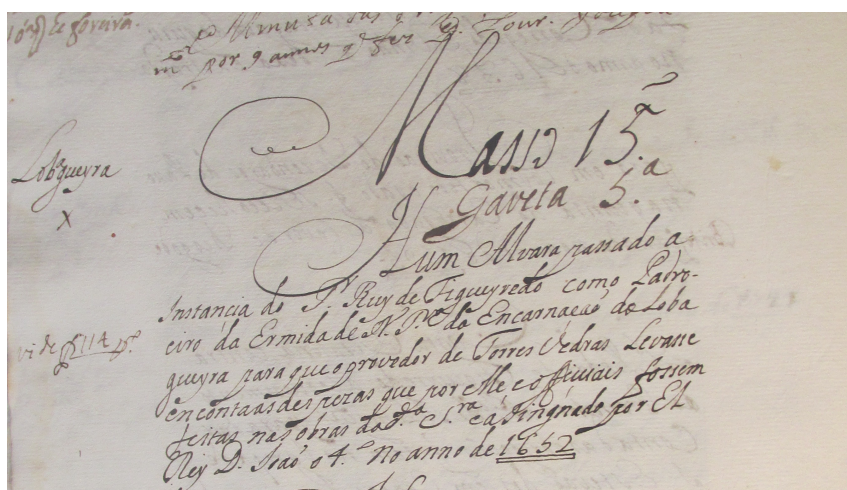 por 9 annos q fez
Masso 15.
Gaveta 5.ª
Lobagueyra
X
Hum Alvara passado a
Instancia do S.r Ruy de Figueyredo como Padro-
eiro da Ermida de N. S.ra da Encarnaçaõ de Loba
gueyra para que o provedor de Torres Vedras Levasse
em conta as despezas que por elle e officiais fossem
feitas nas obras da d.ª S.ra e asingnado por El
Rey D. Joaõ o 4.º no anno de 1652
vide